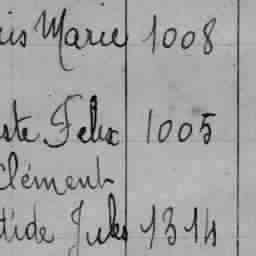 is Marie 1008
ste Felix 1005
Clément
tide Jules 1314